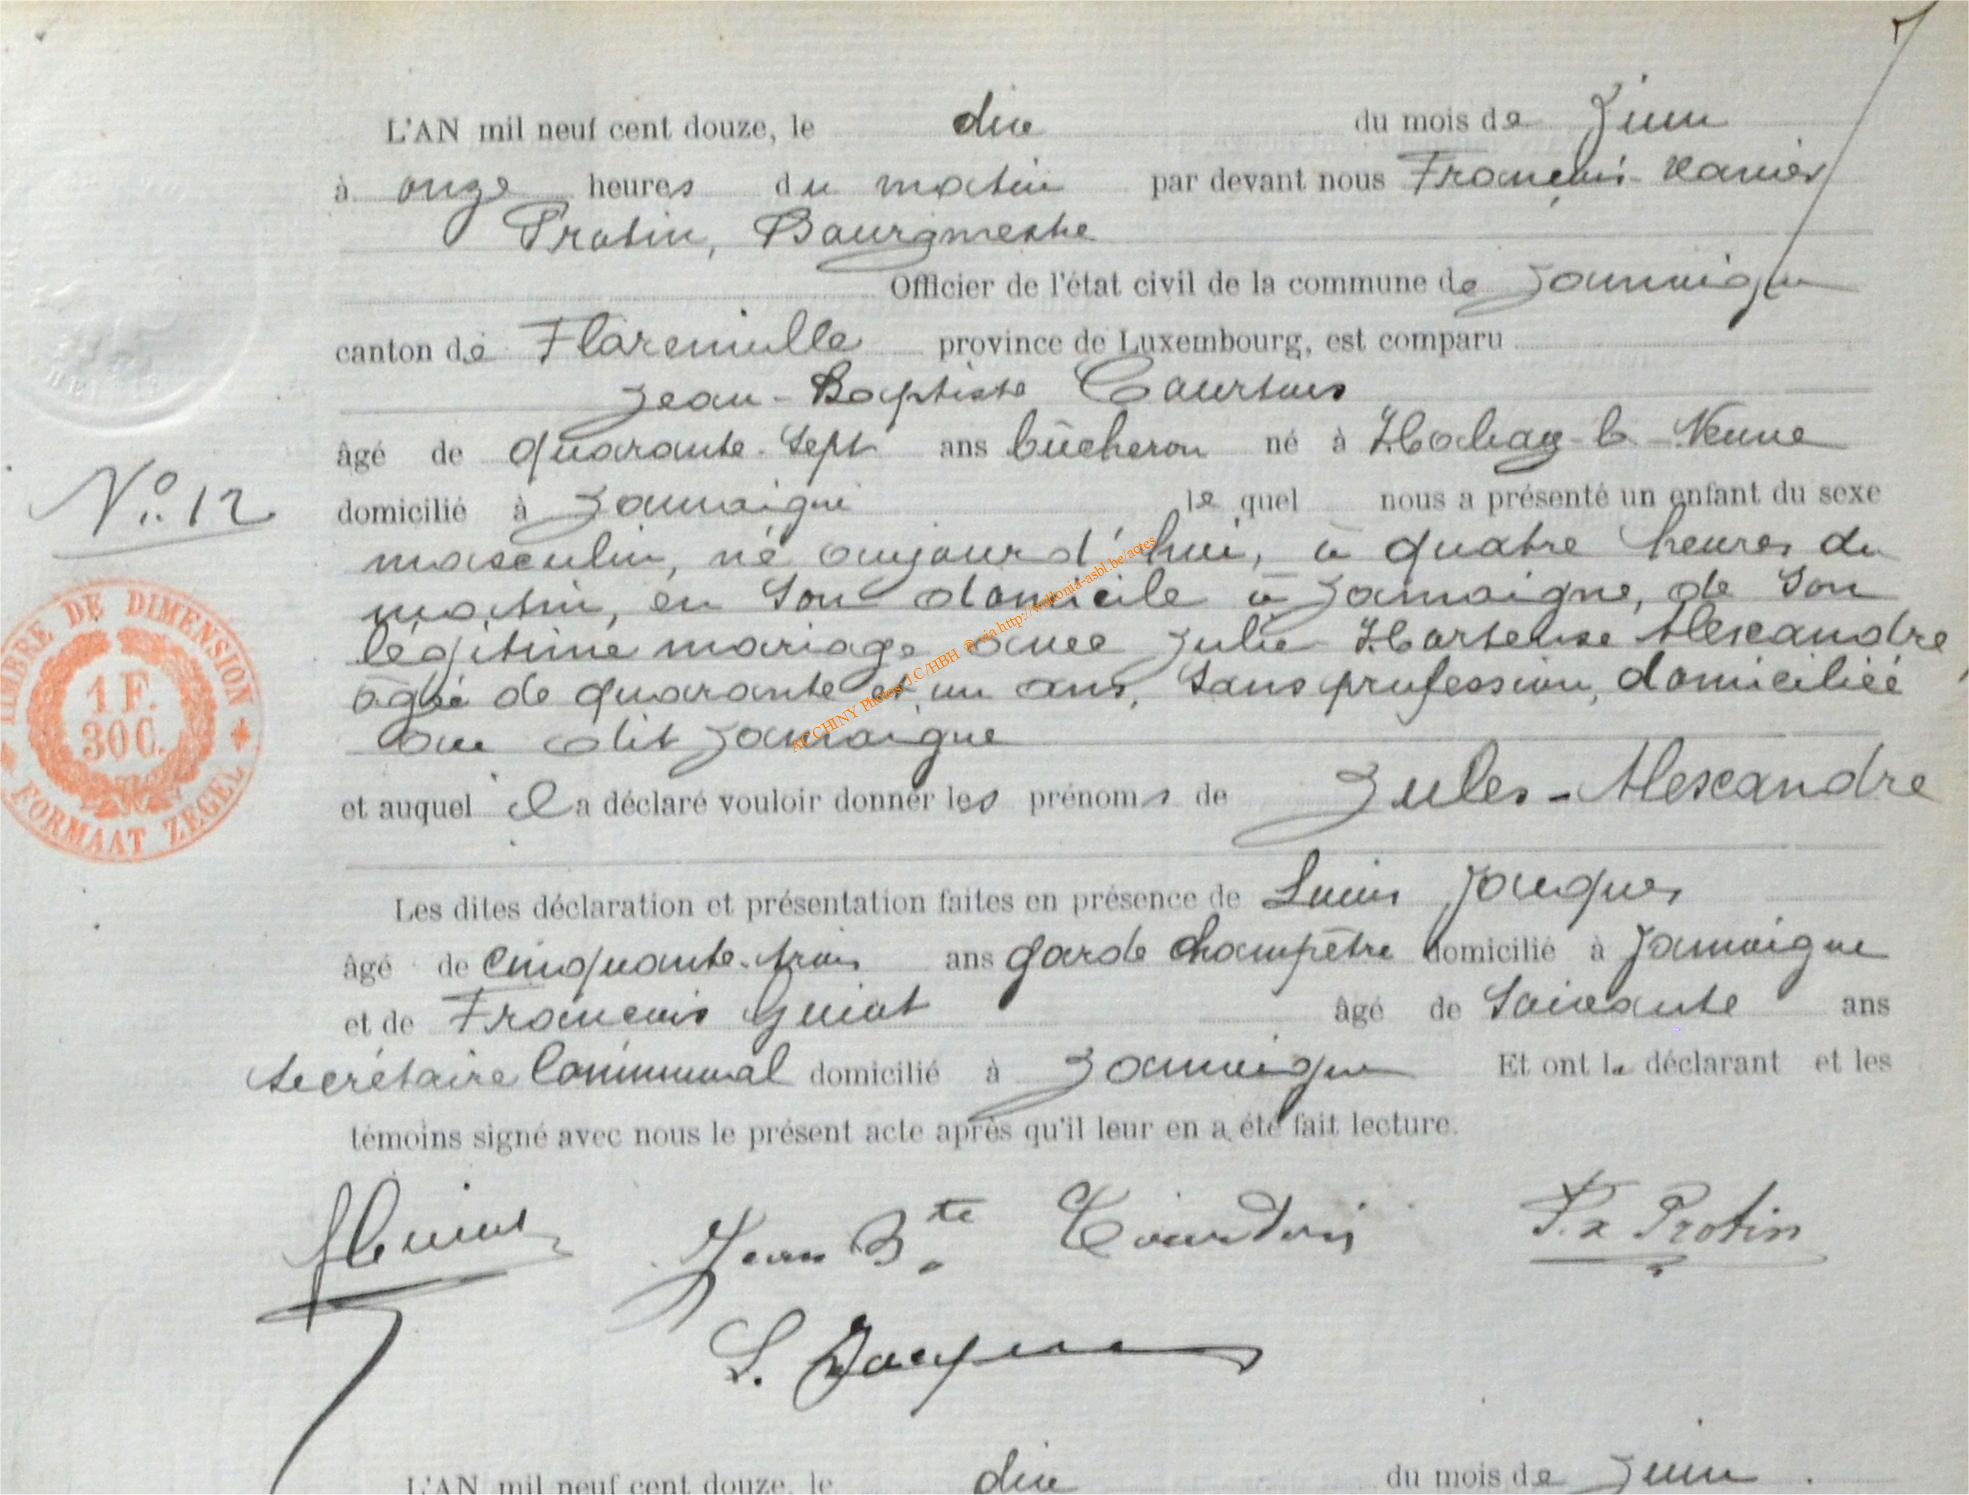 L'AN mil neuf cent douze, le dix du mois de Juin
à onze heures du matin par devant nous François-Xavier
Protin, Bourgmestre
Officier de l'état civil de la commune de Jamoigne
canton de Florenville province de Luxembourg, est comparu
Jean-Baptiste Courtois
âgé de quarante-sept ans bûcheron né à Habay-la-Neuve
N° 12
domicilié à Jamoigne lequel nous a présenté un enfant du sexe
masculin, né aujourd'hui, à quatre heures du
matin, en son domicile à Jamoigne, de son
légitime mariage avec Julie Hortense Alexandre
âgée de quarante et un ans, sans profession, domiciliée
au dit Jamoigne
et auquel il a déclaré vouloir donner les prénoms de Jules-Alexandre
Les dites déclaration et présentation faites en présence de Louis Jacques
âgé de cinquante-trois ans garde champêtre domicilié à Jamoigne
et de François Guiot âgé de soixante ans
secrétaire communal domicilié à Jamoigne Et ont le déclarant et les
témoins signé avec nous le présent acte après qu'il leur en a été fait lecture.
Jean Bte Courtois F.x Protin
L. Jacques
L'AN mil neuf cent douze, le dix du mois de Juin
TIMBRE DE DIMENSION
1 F.
30 C.
FORMAAT ZEGEL